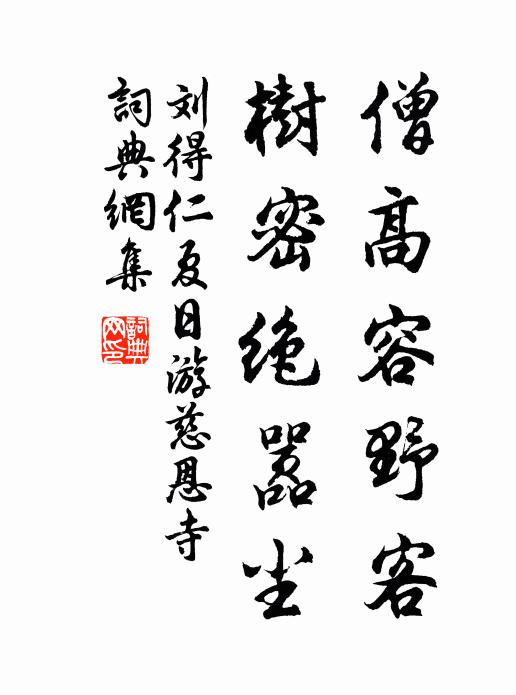 僧高容野客
樹密绝嚣尘
刘得仁夏日游慈恩寺
詞典網集
詞典网印